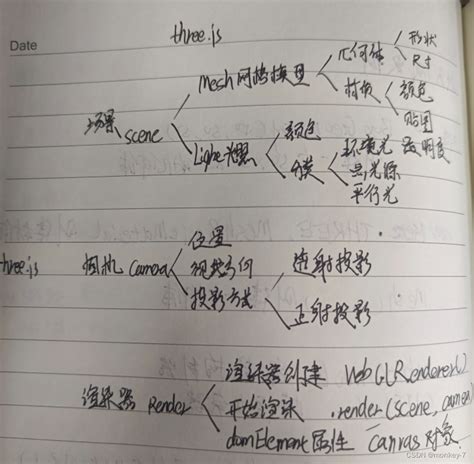 Date
three.js
场景 scene
Mesh 网格模型
几何体
形状
尺寸
材质
颜色
贴图
透明度
Light 光照
颜色
分类
环境光
点光源
平行光
three.js
相机 Camera
位置
视线方向
投影方式
透射投影
正射投影
渲染器 Render
渲染器创建 WebGLRenderer()
开始渲染 .render(scene, camer
domElement属性 Canvas对象
CSDN @monkey-7